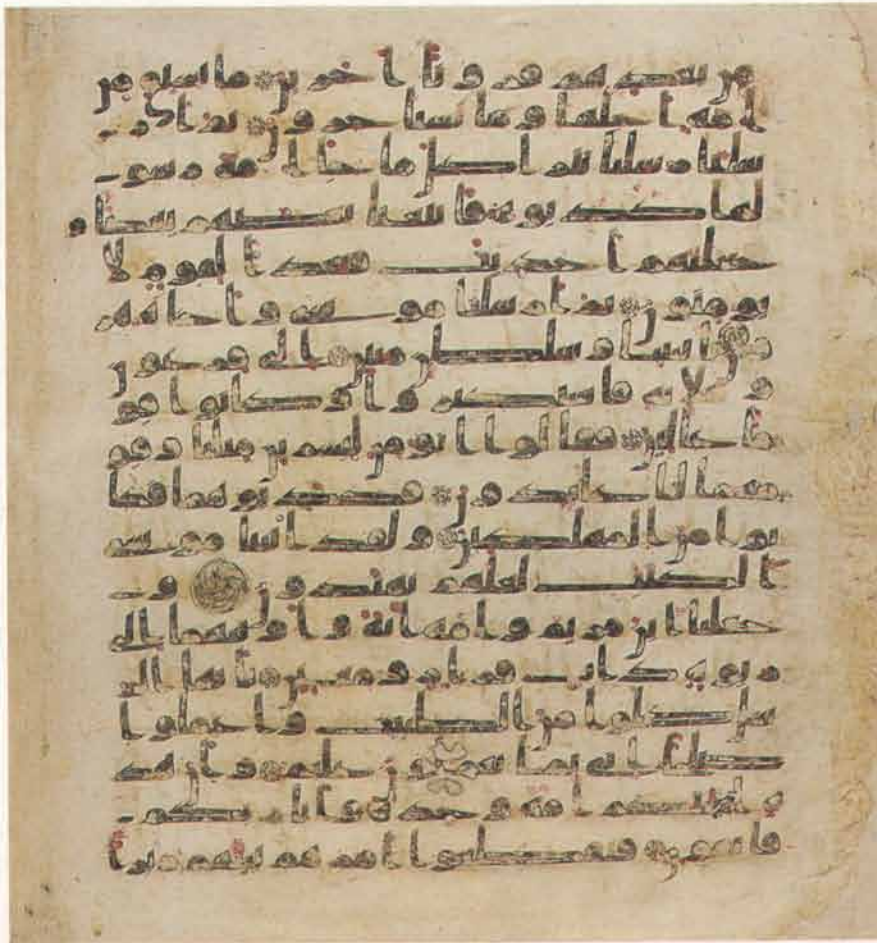 من بعدهم قرونا اخرين ما تسبق من
امة اجلها وما يستاخرون ثم ار
سلنا رسلنا تترا كل ما جا امة رسو
لها كذبوه فاتبعنا بعضهم بعضا و
جعلنهم احديث فبعدا لقوم لا
يومنون ثم ارسلنا موسى واخاه هر
ون بايتنا وسلطن مبين الى فرعون
وملايه فاستكبروا وكانوا قو
ما عالين فقالوا انومن لبشرين مثلنا وقو
مهما لنا عبدون فكذبوهما فكا
نوا من المهلكين ولقد اتينا موسى
الكتب لعلهم يهتدون و
جعلنا ابن مريم وامه اية واوينهما الى
ربوة ذات قرار ومعين يايها الر
سل كلوا من الطيبت واعملوا
صلحا اني بما تعملون عليم وان هذ
ه امتكم امة وحدة وانا ربكم
فاتقون فتقطعوا امرهم بينهم زبرا